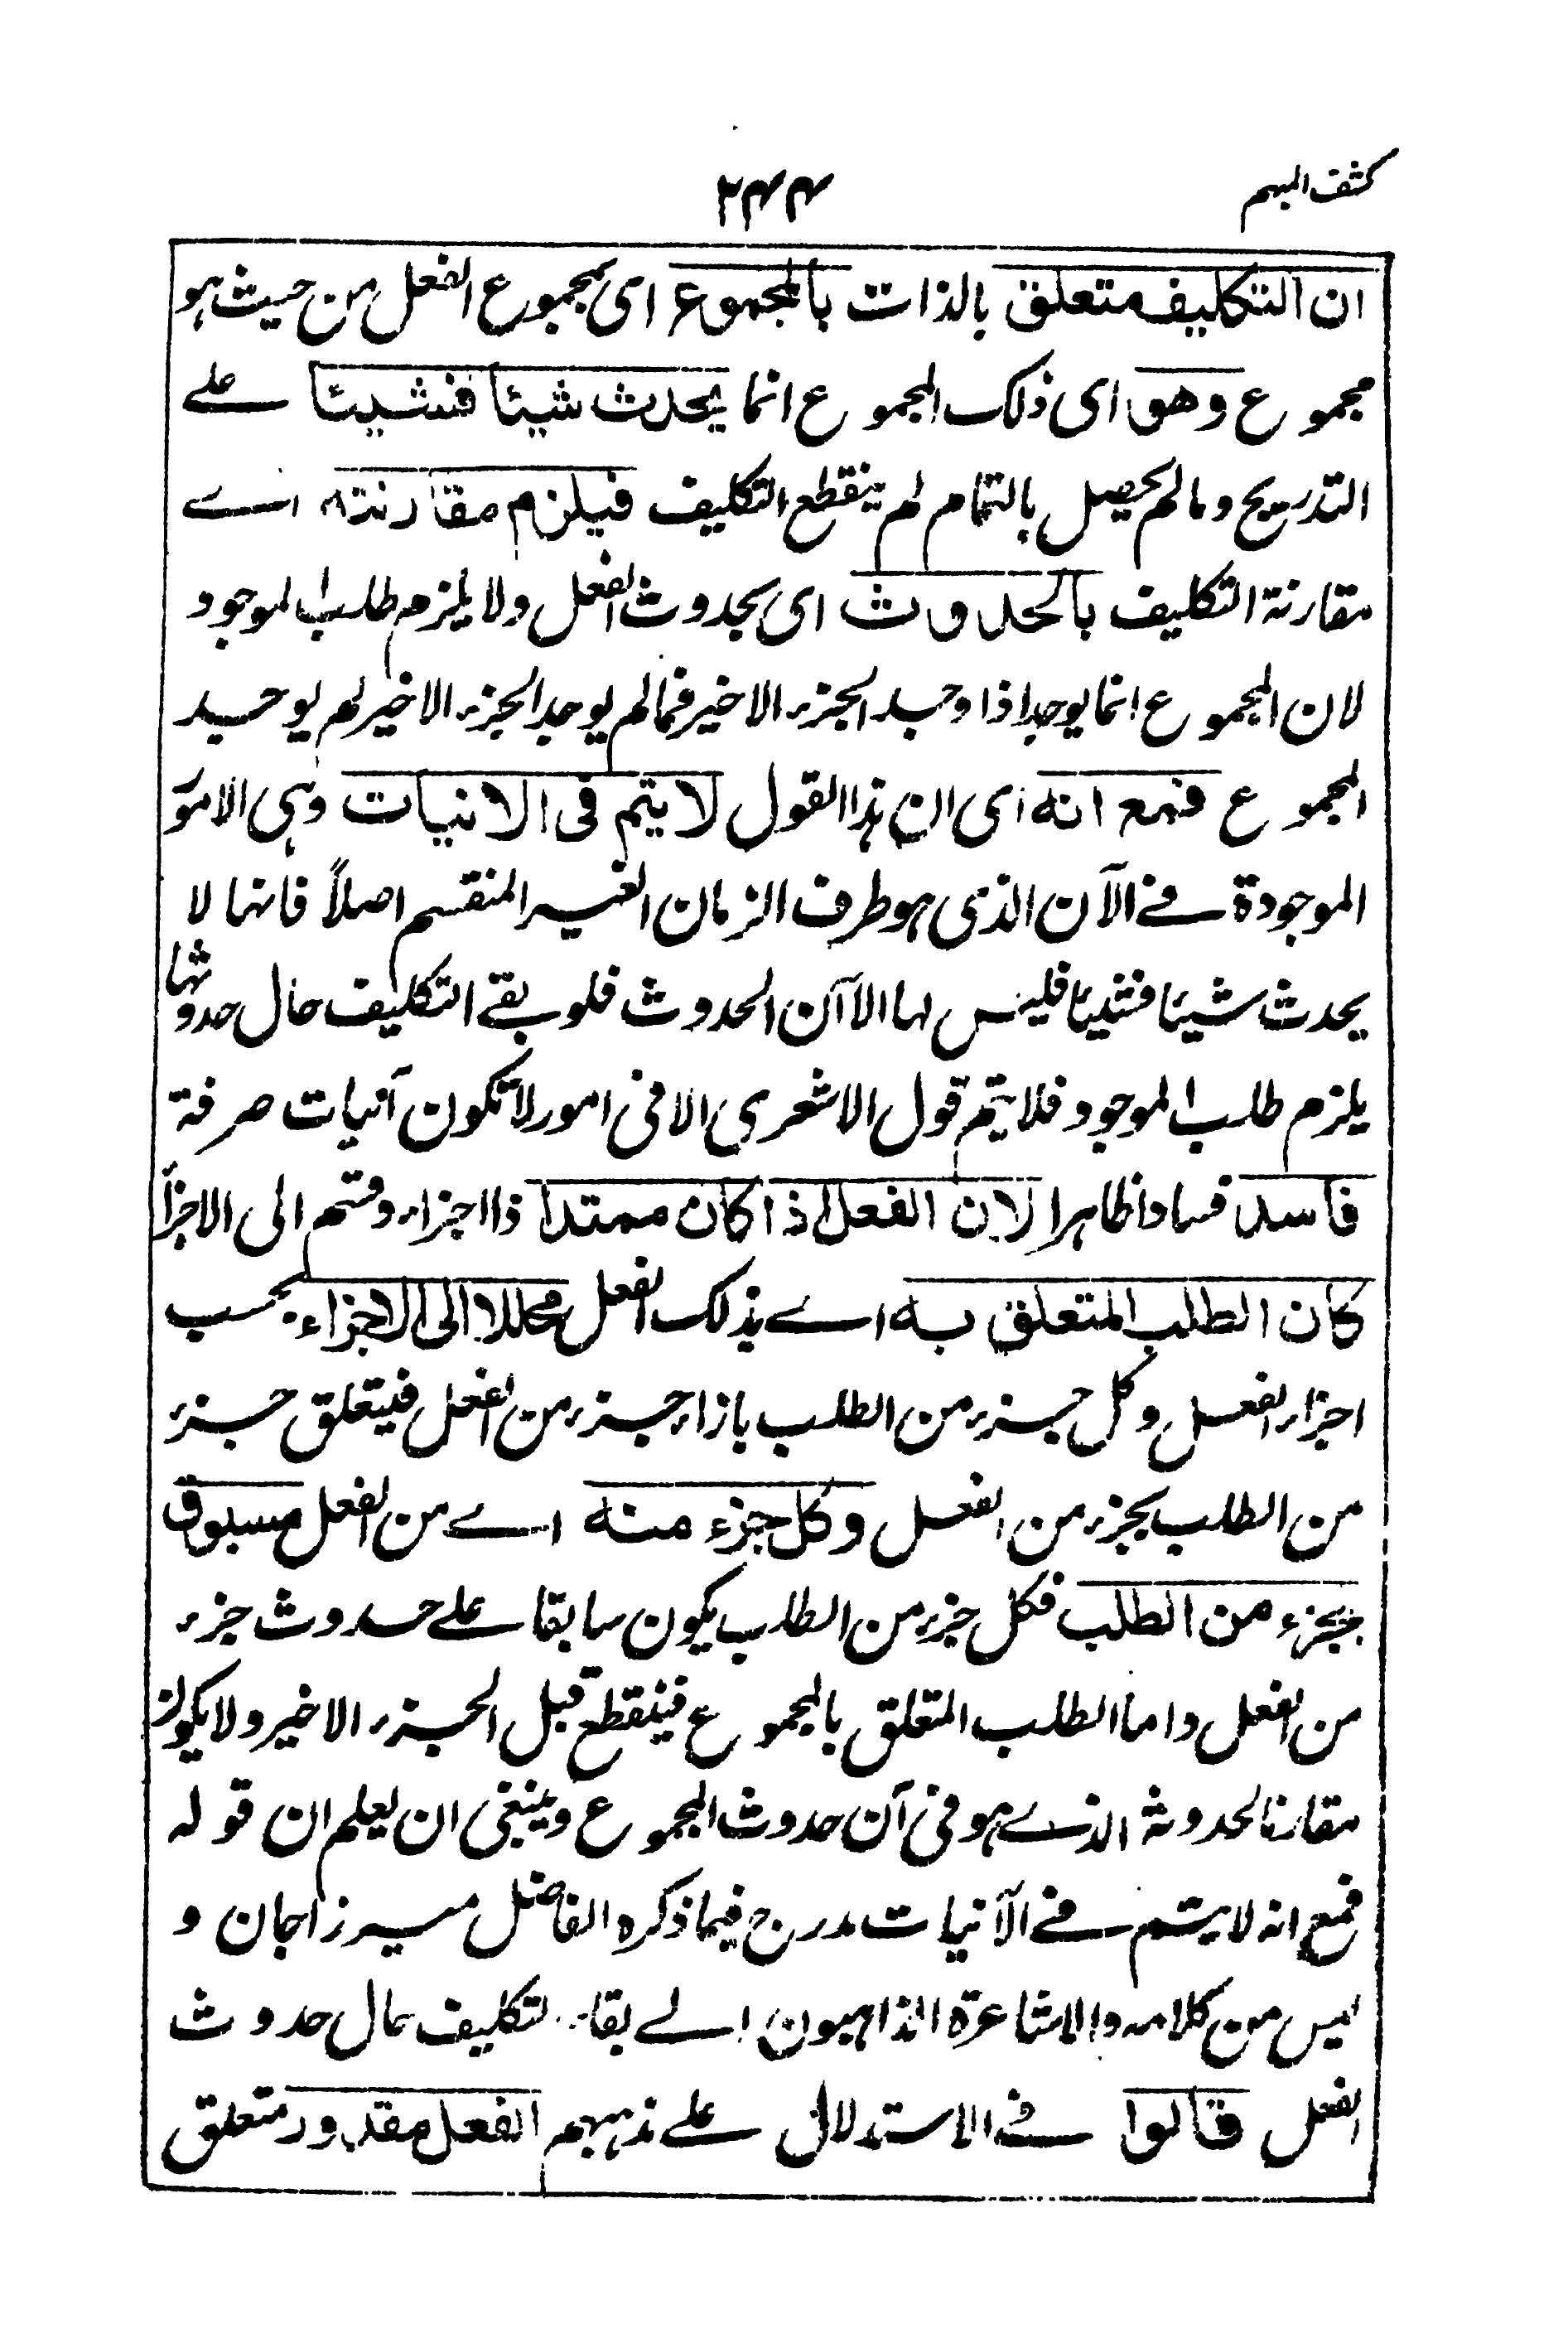 كشف المبهم
٢٤٤
ان التكليف متعلق بالذات بالمجموع اى بمجموع الفعل من حيث هو
مجموع وهو اى ذلك المجموع انما يحدث شيئا فشيئا على
التدريج وما لم يحصل بالتمام لم ينقطع التكليف فيلزم مقارنته اے
مقارنة التكليف بالحدوث اى بحدوث الفعل ولا يلزم طلب الموجود
لان المجموع انما يوجد اذا وجد الجزء الاخير فما لم يوجد الجزء الاخير لم يوجد
المجموع فمع انه اى ان هذا القول لا يتم فى الانيات وهى الامور
الموجودة فے الآن الذى هو طرف الزمان الغير المنقسم اصلاً فانها لا
يحدث شيئا فشيئا فليس لها الا آن الحدوث فلو بقے التكليف حال حدوثها
يلزم طلب الموجود فلا يتم قول الاشعرى الا فى امور لا تكون آنيات صرفة
فاسد فسادا ظاهرا لان الفعل اذا كان ممتدا ذا اجزاء وقسم الى الاجزاء
كان الطلب المتعلق به اے بذلك الفعل محللا الى الاجزاء بحسب
اجزاء الفعل وكل جزء من الطلب بازاء جزء من الفعل فيتعلق جزء
من الطلب بجزء من الفعل وكل جزء منه اے من الفعل مسبوق
بجزء من الطلب فكل جزء من الطلب يكون سابقا على حدوث جزء
من الفعل واما الطلب المتعلق بالمجموع فينقطع قبل الجزء الاخير ولا يكون
مقارنا لحدوثه الذے هو فى آن حدوث المجموع وينبغى ان يعلم ان قوله
فمع انه لا يتم فے الآنيات مدرج فيما ذكره الفاضل ميرزا جان و
ليس من كلامه والاشاعرة الذاهبون الے بقاء التكليف حال حدوث
الفعل قالوا فے الاستدلال على مذهبهم الفعل مقدور متعلق